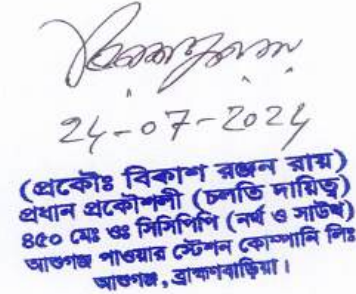 24-07-2024
(প্রকৌঃ বিকাশ রঞ্জন রায়)
প্রধান প্রকৌশলী (চলতি দায়িত্ব)
৪৫০ মেঃ ওঃ সিসিপিপি (নর্থ ও সাউথ)
আশুগঞ্জ পাওয়ার স্টেশন কোম্পানি লিঃ
আশুগঞ্জ, ব্রাহ্মণবাড়িয়া।